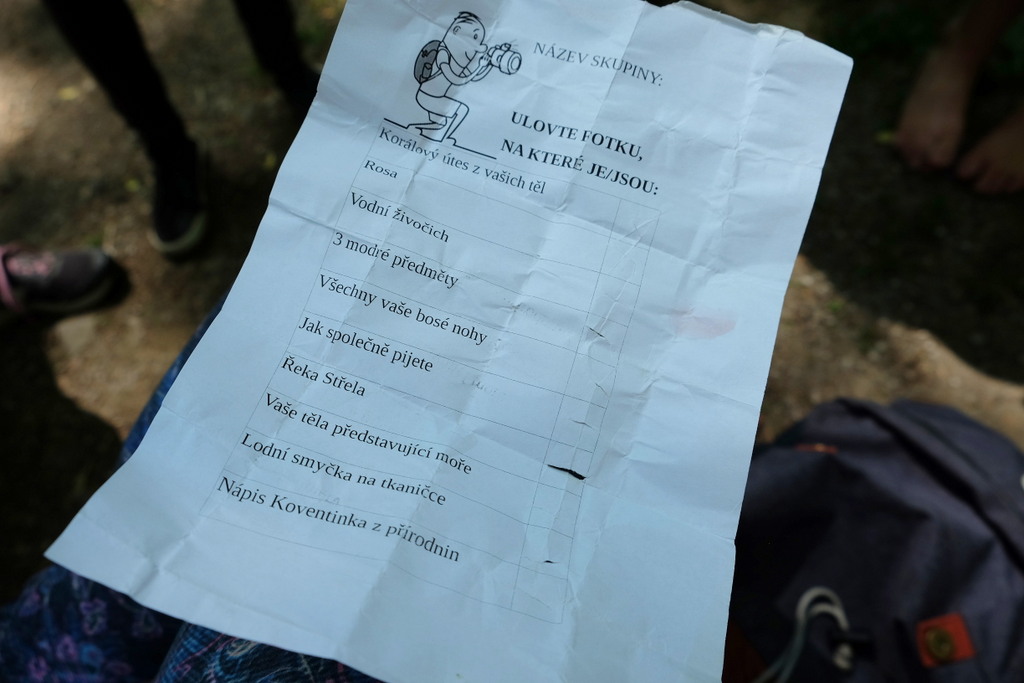 NÁZEV SKUPINY:
ULOVTE FOTKU,
NA KTERÉ JE/JSOU:
Korálový útes z vašich těl
Rosa
Vodní živočich
3 modré předměty
Všechny vaše bosé nohy
Jak společně pijete
Řeka Střela
Vaše těla představující moře
Lodní smyčka na tkaničce
Nápis Koventinka z přírodnin